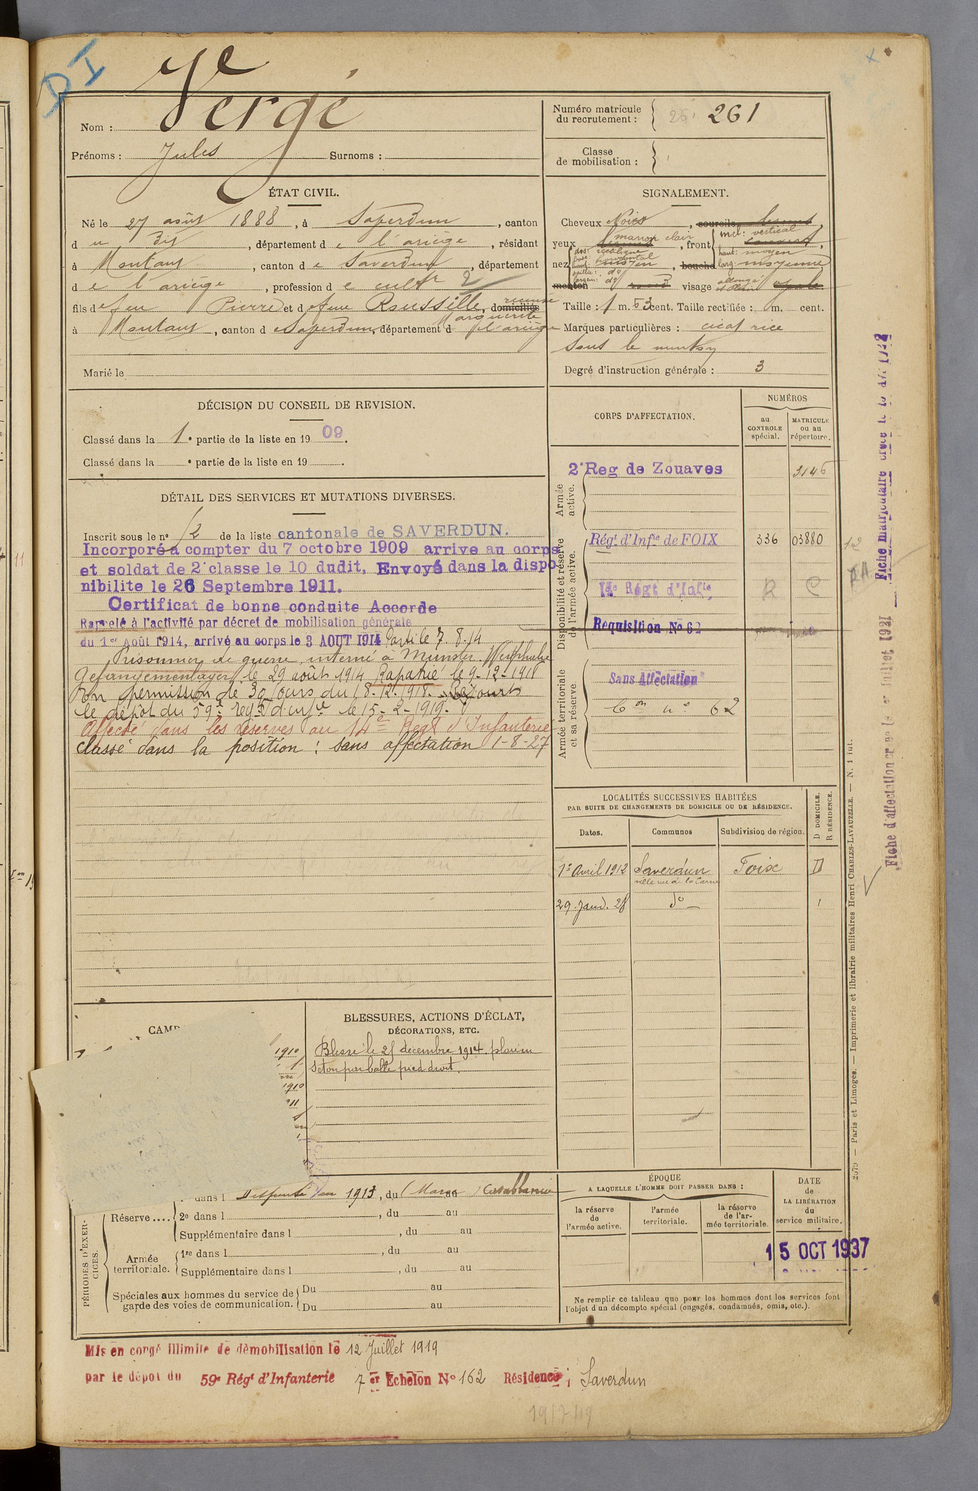 DI
Nom : Vergé
Prénoms : Jules Surnoms :
Numéro matricule du recrutement : 261
Classe de mobilisation :
ÉTAT CIVIL.
Né le 27 août 1888, à Saverdun, canton
d u dit, département d e l'ariège, résidant
à Montaut, canton d e Saverdun, département
d e l'ariège, profession d e cultr 2
fils d e feu Pierre et d e feue Roussille, domiciliés
Marguerite
à Montaut, canton d e Saverdun, département d e l'ariège
Marié le
SIGNALEMENT.
Cheveux Noirs, sourcils
yeux marron clair, front incl: vertical
haut: moyen
nez moyen, bouche larg: moyenne
menton rond visage ovale
Taille : 1 m. 53 cent. Taille rectifiée : m. cent.
Marques particulières : cicatrice
sous le menton
Degré d'instruction générale : 3
DÉCISION DU CONSEIL DE REVISION.
Classé dans la 1e partie de la liste en 1909.
Classé dans la e partie de la liste en 19 .
DÉTAIL DES SERVICES ET MUTATIONS DIVERSES.
Inscrit sous le no 12 de la liste cantonale de SAVERDUN.
Incorporé à compter du 7 octobre 1909 arrive au corps
et soldat de 2e classe le 10 dudit, Envoyé dans la dispo
nibilite le 26 Septembre 1911.
Certificat de bonne conduite Accorde
Rappelé à l'activité par décret de mobilisation générale
du 1er Août 1914, arrivé au corps le 3 AOUT 1914 Parti le 7.8.14
Prisonnier de guerre interné à Munster Westphalie
le 29 août 1914 Rapatrié le 9-12-1918
Bon permission de 30 jours du 18.12.1918.
le dépot du 59e regt d'infie le 15-2-1919.
Affecté dans les réserves au 14e Regt d'Infanterie
classé dans la position : sans affectation 1-8-27
CORPS D'AFFECTATION.
NUMÉROS
au CONTROLE spécial.
MATRICULE ou au répertoire.
Armée active.
2e Reg de Zouaves 3146
Disponibilité et réserve de l'armée active.
Régt d'Infie de FOIX 336 03880
14e Régt d'Infie R C
Requisition No 62
Armée territoriale et sa réserve.
Sans Affectation
Con no 62
LOCALITÉS SUCCESSIVES HABITÉES
PAR SUITE DE CHANGEMENTS DE DOMICILE OU DE RÉSIDENCE.
Dates. Communes Subdivision de région. D DOMICILE. R RÉSIDENCE.
1er Avril 1912 Saverdun Foix D
29 Janv. 28 do
CAMP
1910
1910
BLESSURES, ACTIONS D'ÉCLAT,
DÉCORATIONS, ETC.
Blessé le 25 decembre 1914. plaie en
seton par balle pied droit.
PÉRIODES D'EXERCICES.
dans l Dispensé en 1913, du (Maroc au Casablanca
Réserve .... 2e dans l , du au
Supplémentaire dans l , du au
Armée territoriale. 1re dans l , du au
Supplémentaire dans l , du au
Spéciales aux hommes du service de garde des voies de communication. Du au
Du au
ÉPOQUE
A LAQUELLE L'HOMME DOIT PASSER DANS :
la réserve de l'armée active.
l'armée territoriale.
la réserve de l'armée territoriale.
DATE de LA LIBÉRATION du service militaire.
15 OCT 1937
Ne remplir ce tableau que pour les hommes dont les services font
l'objet d'un décompte spécial (engagés, condamnés, omis, etc.).
Mis en congé illimité de démobilisation le 12 Juillet 1919
par le dépot du 59e Régt d'Infanterie 7 er Echelon No 162 Résidence ; Saverdun
Paris et Limoges. — Imprimerie et librairie militaires Henri CHARLES-LAVAUZELLE. — N. 1 int.